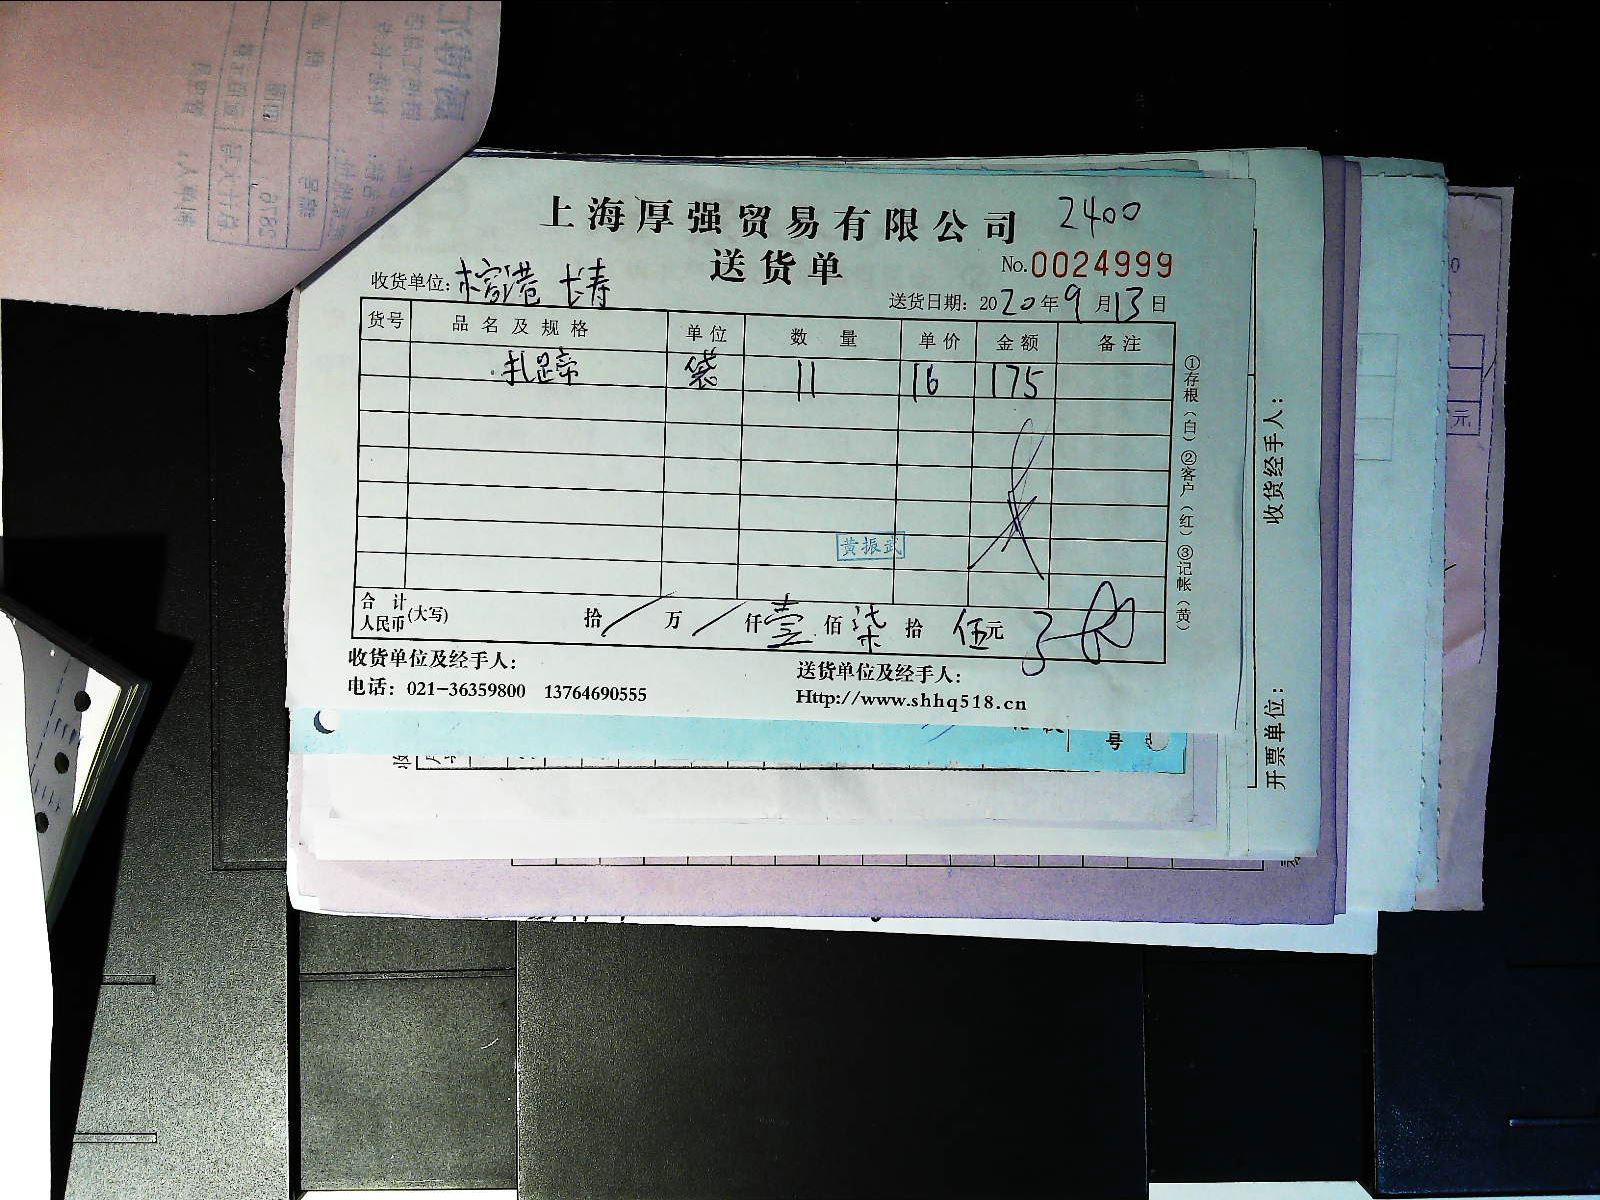 上海厚强贸易有限公司 2400
送货单 No.0024999
收货单位: 榕港 长寿 送货日期: 2020年9月13日
货号 品名及规格 单位 数量 单价 金额 备注
扎蹄 袋 11 16 175
黄振武
合计人民币(大写) 拾/万/仟壹佰柒拾伍元
收货单位及经手人: 送货单位及经手人:
电话: 021-36359800 13764690555 Http://www.shhq518.cn
①存根(白)②客户(红)③记帐(黄)
收货经手人:
开票单位:
元
号